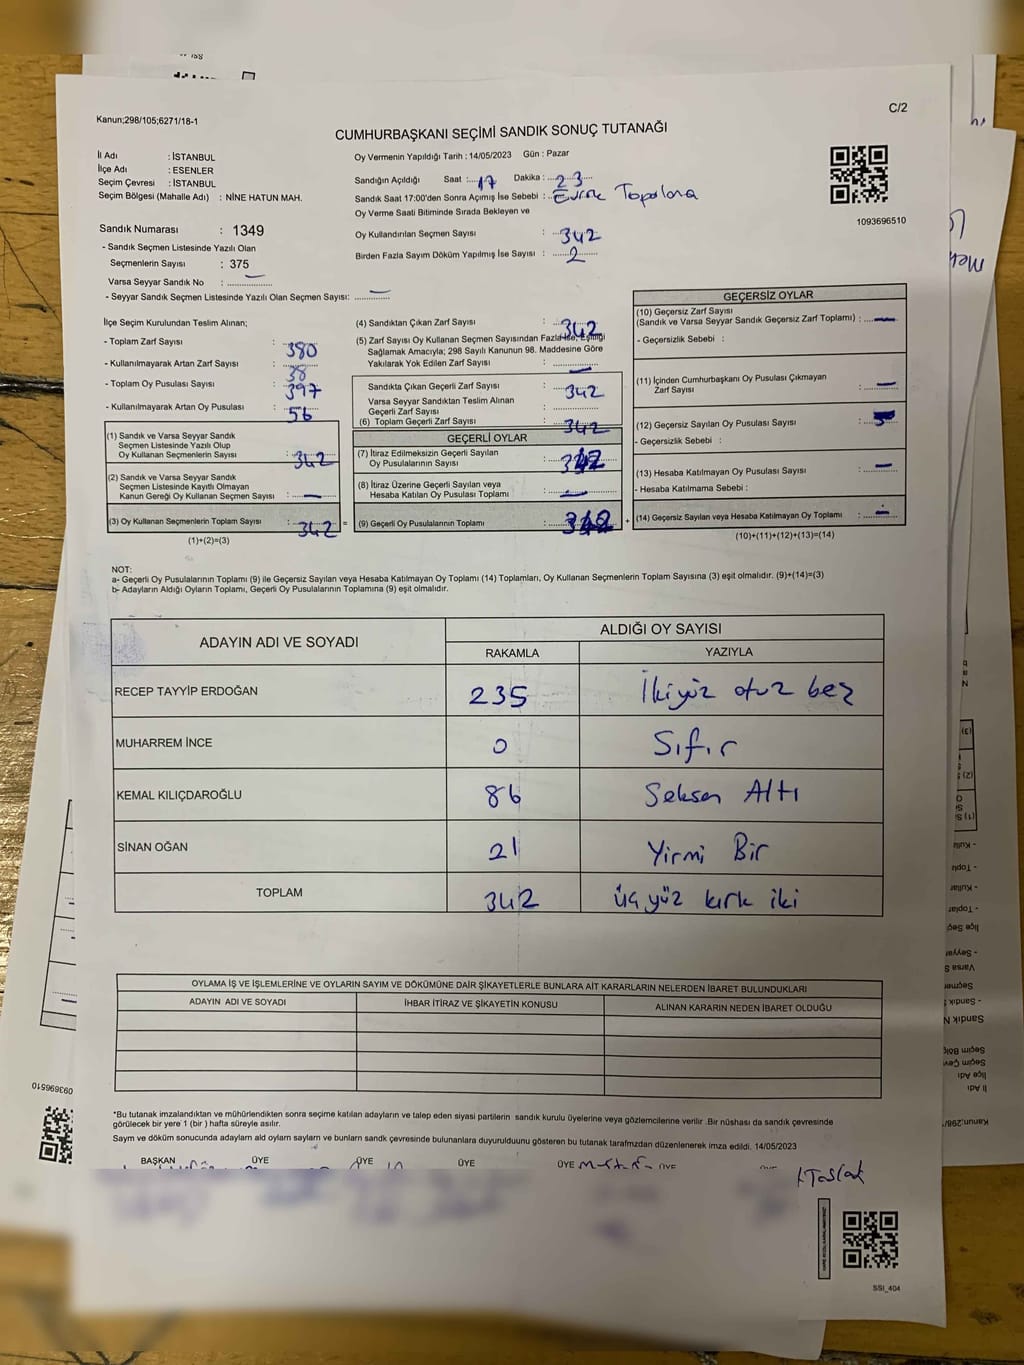 C/2
Kanun;298/105;6271/18-1
CUMHURBAŞKANI SEÇİMİ SANDIK SONUÇ TUTANAĞI
İl Adı : İSTANBUL
İlçe Adı : ESENLER
Seçim Çevresi : İSTANBUL
Seçim Bölgesi (Mahalle Adı) : NİNE HATUN MAH.
Sandık Numarası : 1349
- Sandık Seçmen Listesinde Yazılı Olan
Seçmenlerin Sayısı : 375
Varsa Seyyar Sandık No : —
- Seyyar Sandık Seçmen Listesinde Yazılı Olan Seçmen Sayısı: —
Oy Vermenin Yapıldığı Tarih : 14/05/2023 Gün : Pazar
Sandığın Açıldığı Saat : 17 Dakika : 23
Sandık Saat 17:00'den Sonra Açımış İse Sebebi : Evrak Toplama
Oy Verme Saati Bitiminde Sırada Bekleyen ve
Oy Kullandırılan Seçmen Sayısı : 342
Birden Fazla Sayım Döküm Yapılmış İse Sayısı : 2
1093696510
İlçe Seçim Kurulundan Teslim Alınan;
- Toplam Zarf Sayısı : 380
- Kullanılmayarak Artan Zarf Sayısı : 38
- Toplam Oy Pusulası Sayısı : 397
- Kullanılmayarak Artan Oy Pusulası : 56
(1) Sandık ve Varsa Seyyar Sandık
Seçmen Listesinde Yazılı Olup
Oy Kullanan Seçmenlerin Sayısı : 342
(2) Sandık ve Varsa Seyyar Sandık
Seçmen Listesinde Kayıtlı Olmayan
Kanun Gereği Oy Kullanan Seçmen Sayısı : —
(3) Oy Kullanan Seçmenlerin Toplam Sayısı : 342 =
(1)+(2)=(3)
(4) Sandıktan Çıkan Zarf Sayısı : 342
(5) Zarf Sayısı Oy Kullanan Seçmen Sayısından Fazla ise, Eşitliği
Sağlamak Amacıyla; 298 Sayılı Kanunun 98. Maddesine Göre
Yakılarak Yok Edilen Zarf Sayısı : —
Sandıkta Çıkan Geçerli Zarf Sayısı : 342
Varsa Seyyar Sandıktan Teslim Alınan
Geçerli Zarf Sayısı :
(6) Toplam Geçerli Zarf Sayısı : 342
GEÇERLİ OYLAR
(7) İtiraz Edilmeksizin Geçerli Sayılan
Oy Pusulalarının Sayısı : 342
(8) İtiraz Üzerine Geçerli Sayılan veya
Hesaba Katılan Oy Pusulası Toplamı : —
(9) Geçerli Oy Pusulalarının Toplamı : 342 +
GEÇERSİZ OYLAR
(10) Geçersiz Zarf Sayısı
(Sandık ve Varsa Seyyar Sandık Geçersiz Zarf Toplamı) : —
- Geçersizlik Sebebi :
(11) İçinden Cumhurbaşkanı Oy Pusulası Çıkmayan
Zarf Sayısı : —
(12) Geçersiz Sayılan Oy Pusulası Sayısı :
- Geçersizlik Sebebi :
(13) Hesaba Katılmayan Oy Pusulası Sayısı : —
- Hesaba Katılmama Sebebi :
(14) Geçersiz Sayılan veya Hesaba Katılmayan Oy Toplamı : —
(10)+(11)+(12)+(13)=(14)
NOT:
a- Geçerli Oy Pusulalarının Toplamı (9) ile Geçersiz Sayılan veya Hesaba Katılmayan Oy Toplamı (14) Toplamları, Oy Kullanan Seçmenlerin Toplam Sayısına (3) eşit olmalıdır. (9)+(14)=(3)
b- Adayların Aldığı Oyların Toplamı, Geçerli Oy Pusulalarının Toplamına (9) eşit olmalıdır.
ADAYIN ADI VE SOYADI ALDIĞI OY SAYISI
RAKAMLA YAZIYLA
RECEP TAYYİP ERDOĞAN 235 İkiyüz otuz beş
MUHARREM İNCE 0 Sıfır
KEMAL KILIÇDAROĞLU 86 Seksen Altı
SİNAN OĞAN 21 Yirmi Bir
TOPLAM 342 üçyüz kırk iki
OYLAMA İŞ VE İŞLEMLERİNE VE OYLARIN SAYIM VE DÖKÜMÜNE DAİR ŞİKAYETLERLE BUNLARA AİT KARARLARIN NELERDEN İBARET BULUNDUKLARI
ADAYIN ADI VE SOYADI İHBAR İTİRAZ VE ŞİKAYETİN KONUSU ALINAN KARARIN NEDEN İBARET OLDUĞU
*Bu tutanak imzalandıktan ve mühürlendikten sonra seçime katılan adayların ve talep eden siyasi partilerin sandık kurulu üyelerine veya gözlemcilerine verilir .Bir nüshası da sandık çevresinde
görülecek bir yere 1 (bir ) hafta süreyle asılır.
Sayım ve döküm sonucunda adayların ald oyların sayların ve bunların sandk çevresinde bulunanlara duyurulduunu gösteren bu tutanak tarafmzdan düzenlenerek imza edildi. 14/05/2023
BAŞKAN ÜYE ÜYE ÜYE ÜYE
SSI_404